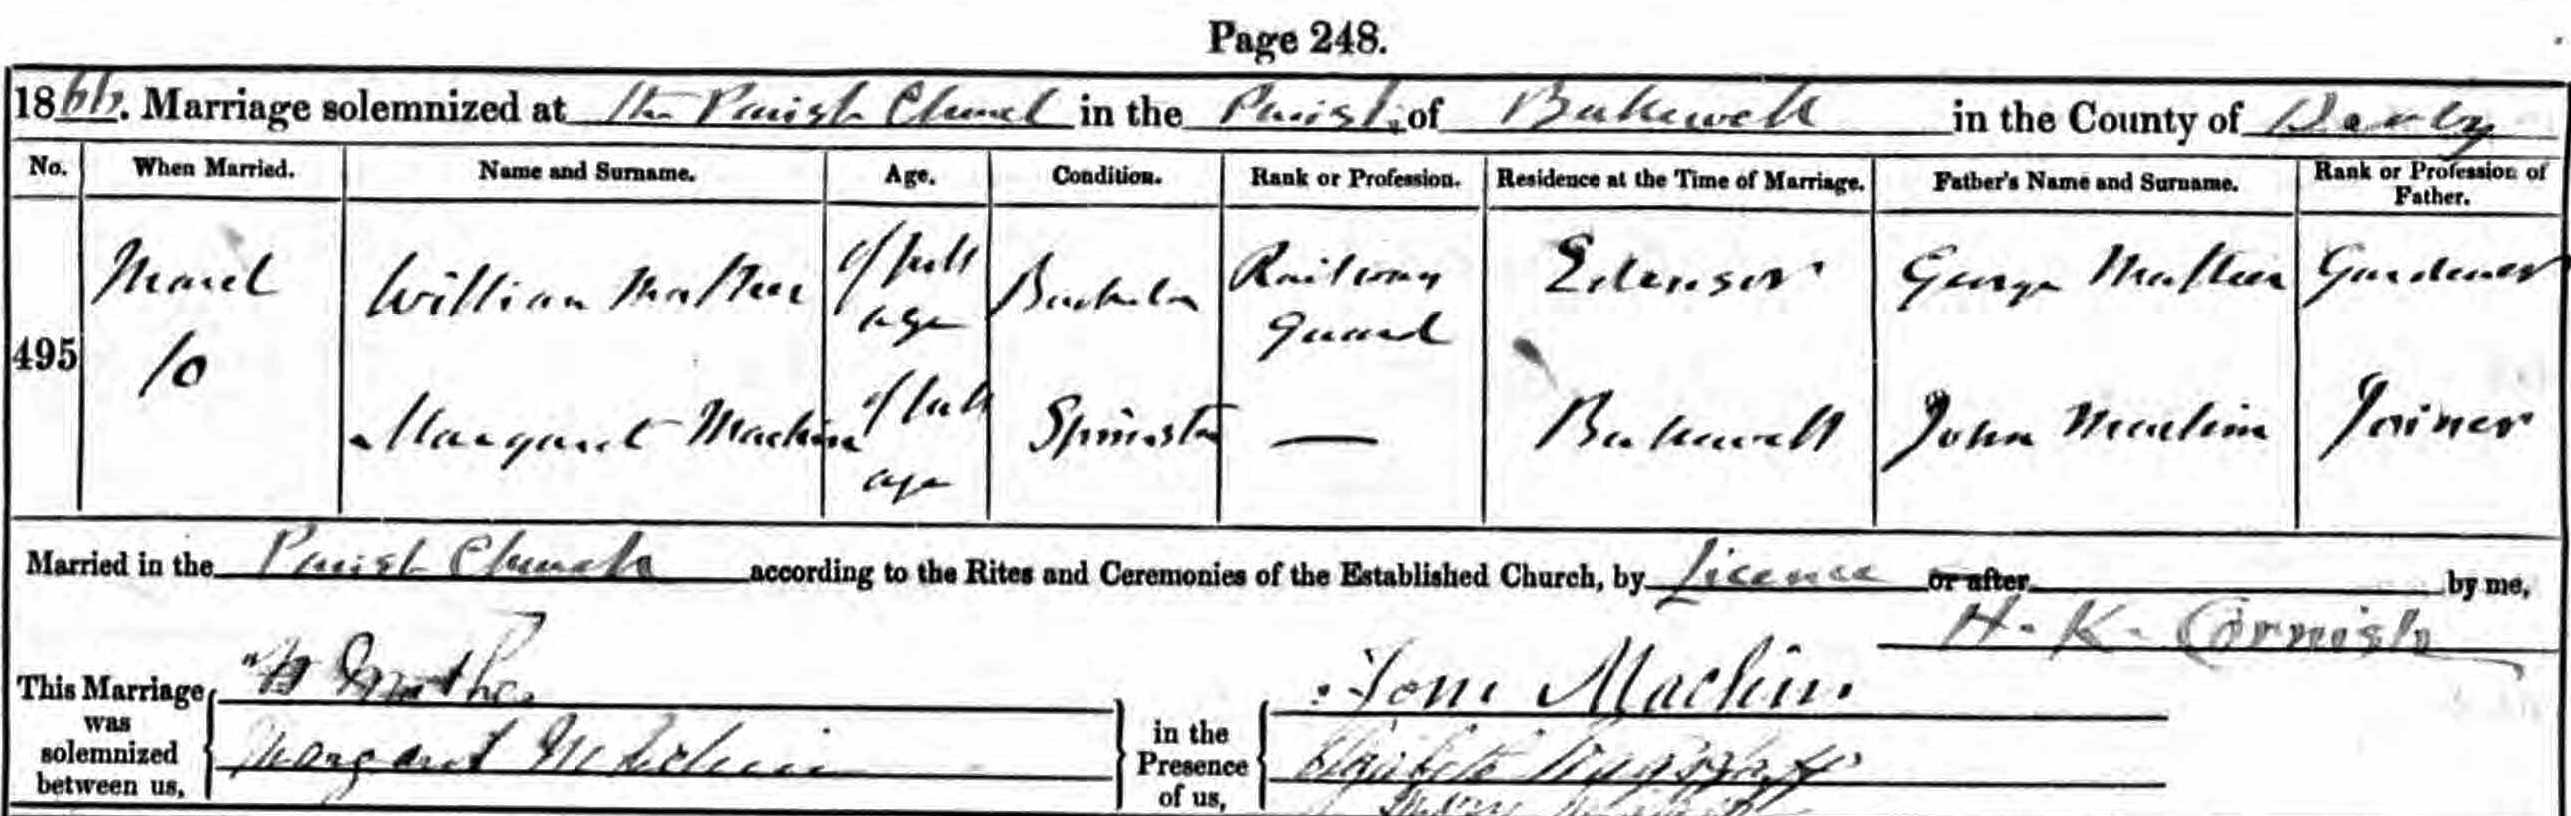 Page 248.
1866. Marriage solemnized at the Parish Church in the Parish of Bakewell in the County of Derby
No. When Married. Name and Surname. Age. Condition. Rank or Profession. Residence at the Time of Marriage. Father's Name and Surname. Rank or Profession of Father.
495 March 10 William Mather of full age Bachelor Railway Guard Edensor George Mather Gardener
Margaret Machin of full age Spinster — Bakewell John Machin Joiner
Married in the Parish Church according to the Rites and Ceremonies of the Established Church, by Licence or after by me,
H. K. Cornish
This Marriage was solemnized between us, W Mather in the Presence of us, Tom Machin
Margaret Machin Elizabeth